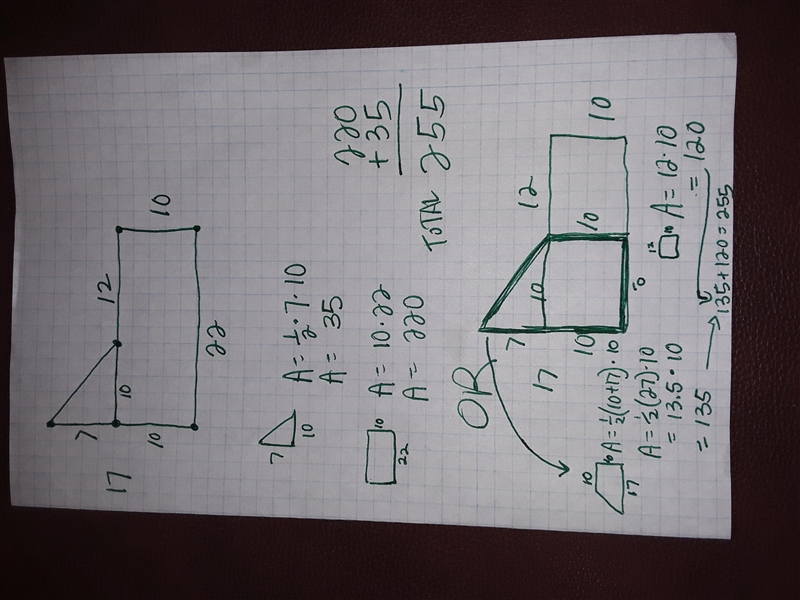 12
10
7
10
10
17
22
7
10
A = 1/2 · 7 · 10
A = 35
10
22
A = 10 · 22
A = 220
220
+ 35
TOTAL 255
OR
12
7
10
10
10
17
10
10
10
10
17
A = 1/2(10+17) · 10
A = 1/2(27) · 10
= 13.5 · 10
= 135
12
10
A = 12 · 10
= 120
135 + 120 = 255